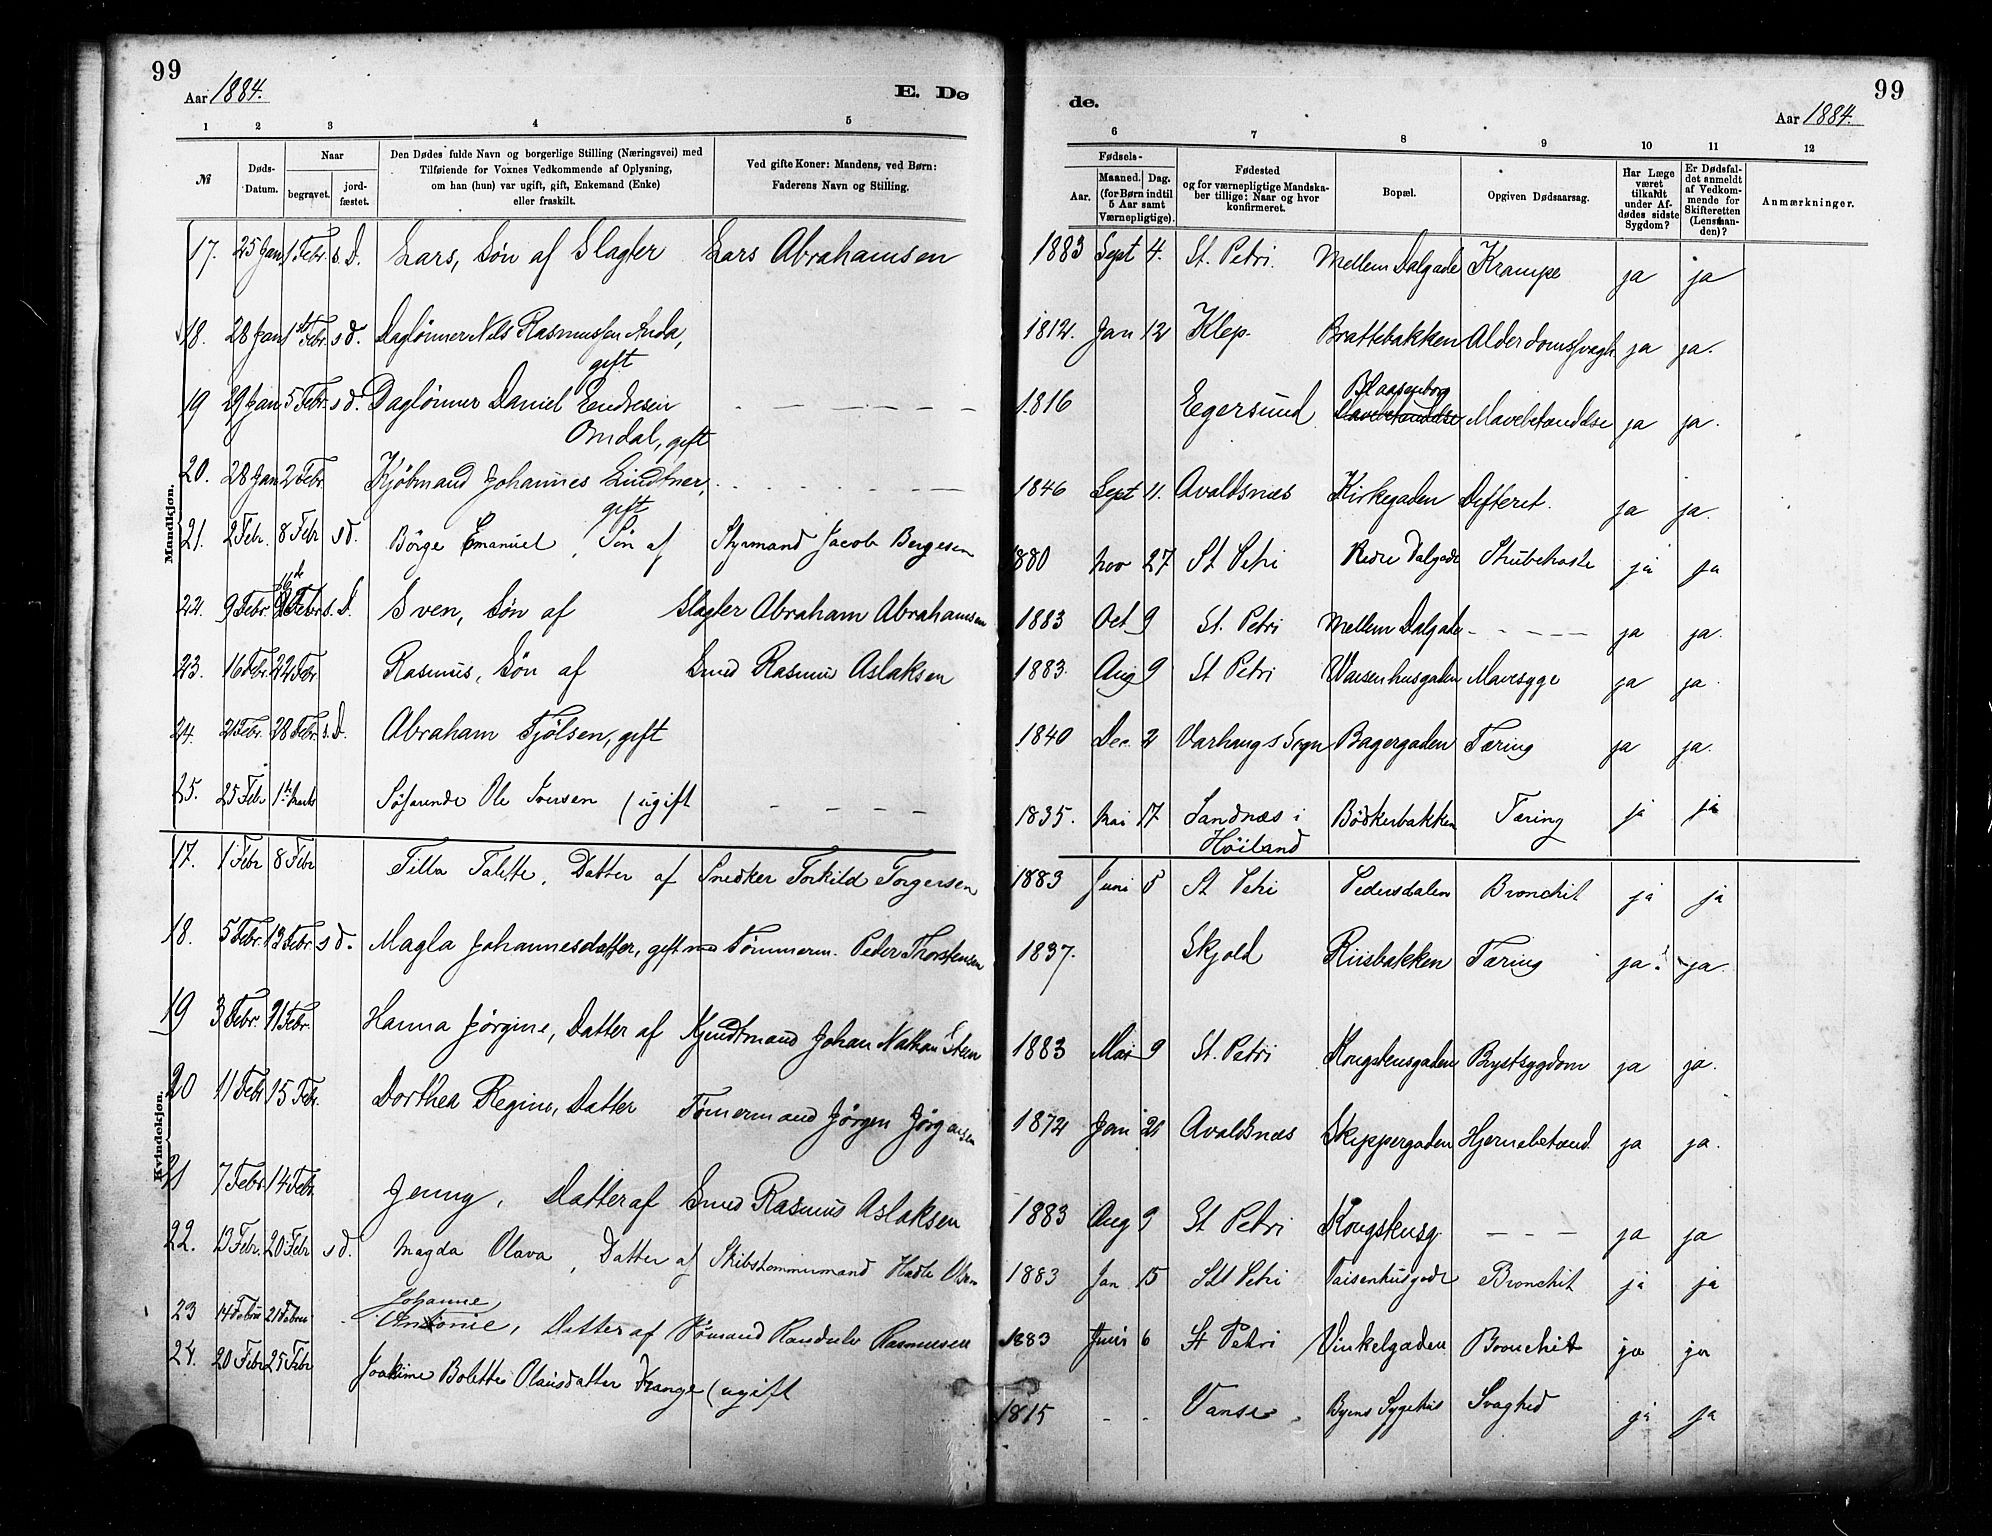 99
Aar 1884.
E. Dø
de.
Aar 1884.
99
1 2 3 4 5 6 7 8 9 10 11 12
№
Døds-Datum.
Naar
begravet.
jord-fæstet.
Den Dødes fulde Navn og borgerlige Stilling (Næringsvei) med
Tilføiende for Voxnes Vedkommende af Oplysning,
om han (hun) var ugift, gift, Enkemand (Enke)
eller fraskilt.
Ved gifte Koner: Mandens, ved Børn:
Faderens Navn og Stilling.
Fødsels-
Aar.
Maaned. Dag.
(for Børn indtil
5 Aar samt
Værnepligtige).
Fødested
og for værnepligtige Mandska-
ber tillige: Naar og hvor
konfirmeret.
Bopæl.
Opgiven Dødsaarsag.
Har Læge
været
tilkaldt
under Af-
dødes sidste
Sygdom?
Er Dødsfal-
det anmeldt
af Vedkom-
mende for
Skifteretten
(Lensman-
den)?
Anmærkninger.
Mandkjøn.
17. 25 Jan 1 Febr. s. D. Lars, Søn af Slagter Lars Abrahamsen 1883 Sept 4. St. Petri. Mellem Dalgade Krampe ja ja
18. 28 Jan 1 Febr. s d. Daglönner Nils Rasmussen Anda, 1812. Jan 12 Klep. Brattebakken Alderdomssvagh ja ja.
gift
19 29 Jan 5 Febr. s d. Daglönner Daniel Endresen - - - 1816 Egersund Blaasenborg Mavebetændelse ja ja.
Omdal, gift
20. 28 Jan 2 Febr Kjöbmand Johannes Lindtner, - - - 1846 Sept 11. Avaldsnæs Kirkegaden Defteret. ja ja.
gift
21. 2 Febr. 8 Febr s d. Börge Emanuel, Sön af Styrmand Jacob Bergesen 1880 Nov 27 St Petri Nedre Dalgade Strubehoste ja ja
22. 9 Febr 16de Febr s. D. Sven, Søn af Slagter Abraham Abrahamsen 1883 Oct 9 St. Petri Mellem Dalgade - - - ja ja.
23. 16 Febr. 22 Febr Rasmus, Søn af Smed Rasmus Aslaksen 1883. Aug 9 St Petri Waisenhusgaden Mavesyge ja ja.
24. 21 Febr. 28 Febr. s. D. Abraham Fjølsen, gift 1840 Dec. 2 Varhaugs Sogn Bagergaden Tæring ja ja.
25. 25 Febr 1 Marts Söfarende Ole Iversen (ugift - - - 1835. Mai 17 Sandnæs i Bödkerbakken Tæring ja ja
Höiland
Kvindekjøn.
17. 1 Febr 8 Febr Tilla Talette, Datter af Snedker Torkild Torgersen 1883 Juni 5 St Petri Pedersdalen Bronchit ja ja
18. 5 Febr. 13 Febr. s d. Magla Johannesdatter, gift med Tömmerm. Peder Thorstensen 1837. Skjold Riisbakken Tæring ja ja.
19 3 Febr. 21 Febr. Hanna Jørgine, Datter af Johan Nathan 1883 Mai 9 St. Petri Kongstensgaden Brystsygdom ja ja.
20 11 Febr 15 Febr. Dorthea Regine, Datter Tömermand Jörgen Jörgensen 1872 Jan 21 Avaldsnæs Skippergaden Hjernebetænd. ja ja.
21 7 Febr. 14 Febr. Jenny, Datter af Smed Rasmus Aslaksen 1883 Aug 9 St Petri Kongstensg. - - - ja ja
22. 13 Febr. 20 Febr s d. Magda Olava, Datter af Skibstömmermand Hadle Olsen 1883 Jan 15 St Petri Vaisenhusgade Bronchit ja ja
Johanne
23 14 Febru 21 Februa Antonie, Datter af Sömand Randulv Rasmussen 1883 Juni 6 St Petri Vinkelgaden Bronchit ja ja
24. 20 Febr 25 Febr Joakime Bolette Olausdatter Krange (ugift 1815 - - Vanse. Byens Sygehus Svaghed ja ja